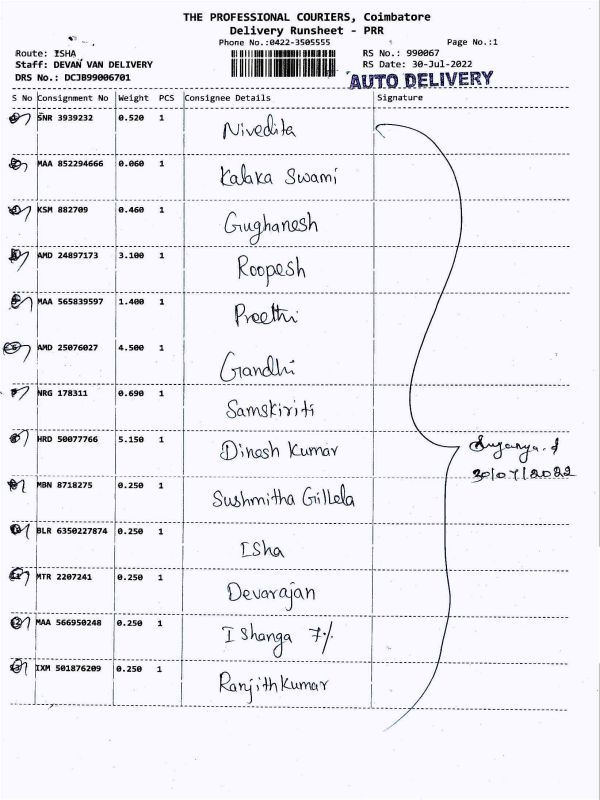 THE PROFESSIONAL COURIERS, Coimbatore
Delivery Runsheet - PRR
Phone No.:0422-3505555 Page No.:1
Route: ISHA RS No.: 990067
Staff: DEVAN VAN DELIVERY RS Date: 30-Jul-2022
DRS No.: DCJB99006701 AUTO DELIVERY
S No Consignment No Weight PCS Consignee Details Signature
SNR 3939232 0.520 1 Nivedita
MAA 852294666 0.060 1 Kalaka Swami
KSM 882709 0.460 1 Gughanesh
AMD 24897173 3.100 1 Roopesh
MAA 565839597 1.400 1 Preethi
AMD 25076027 4.500 1 Gandhi
NRG 178311 0.690 1 Samskiriti
HRD 50077766 5.150 1 Dinesh Kumar
30/07/2022
MBN 8718275 0.250 1 Sushmitha Gillela
BLR 6350227874 0.250 1 Isha
MTR 2207241 0.250 1 Devarajan
MAA 566950248 0.250 1 Ishanga 7%
IXM 501876209 0.250 1 Ranjith Kumar